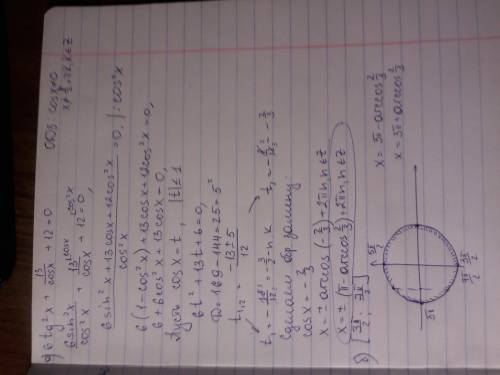 а) 6tg²x + 13/cosx + 12 = 0 ОДЗ: cosx ≠ 0
x ≠ π/2 + πk, k ∈ Z
6sin²x/cos²x + 13^(cosx)/cosx + 12^(cos²x) = 0,
(6sin²x + 13cosx + 12cos²x)/cos²x = 0. | : cos²x
6(1-cos²x) + 13cosx + 12cos²x = 0,
6 + 6cos²x + 13cosx = 0,
Пусть cosx = t, |t| ≤ 1
6t² + 13t + 6 = 0,
D = 169 - 144 = 25 = 5²
t₁,₂ = (-13 ± 5)/12
t₁ = -18/12 = -3/2 - п.к t₂ = -8/12 = -2/3
Сделаем обр. замену:
cosx = -2/3
x = ± arccos(-2/3) + 2πn, n ∈ Z
x = ± (π - arccos 2/3) + 2πn, n ∈ Z
б) [3π/2; 7π/2]
5π/2
3π
3π/2 7π/2
x = 3π - arccos 2/3
x = 3π + arccos 2/3